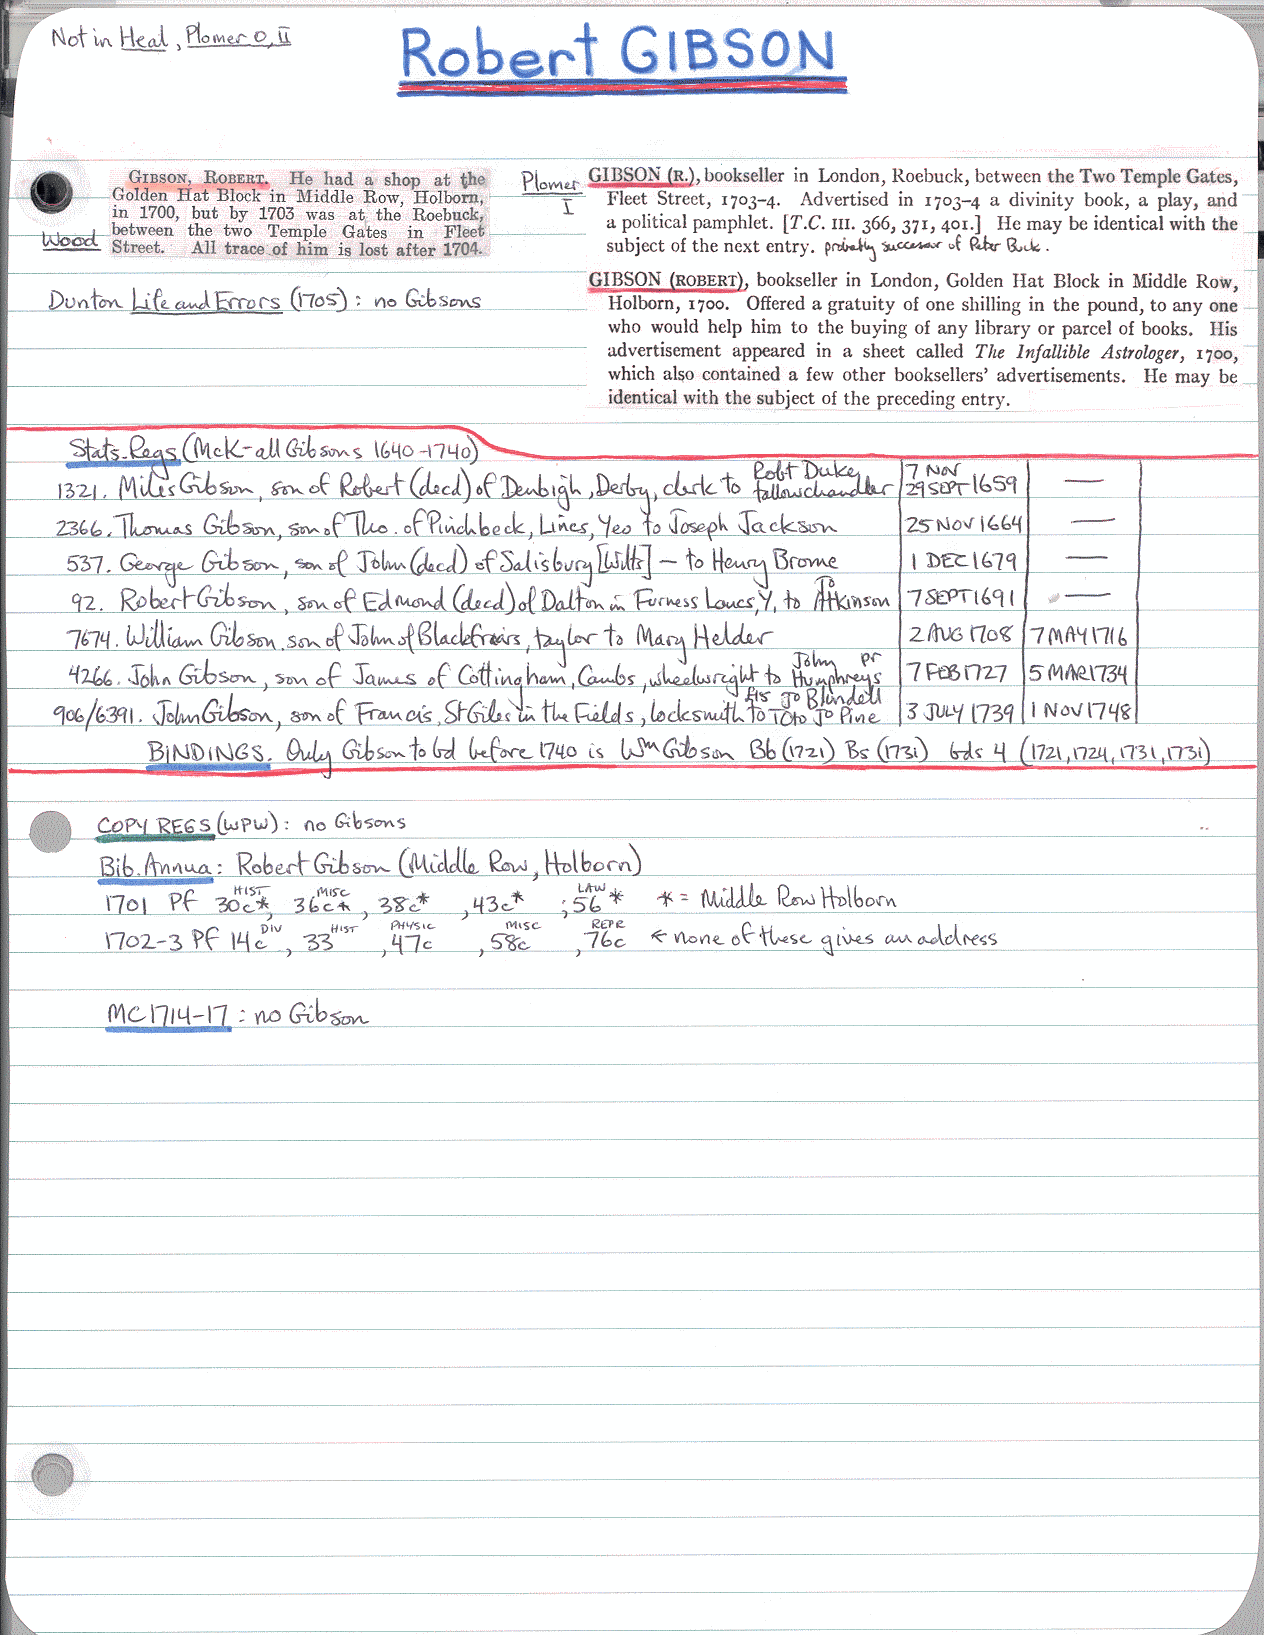 Not in Heal, Plomer 0, II
Robert GIBSON
GIBSON, ROBERT. He had a shop at the
Golden Hat Block in Middle Row, Holborn,
in 1700, but by 1703 was at the Roebuck,
between the two Temple Gates in Fleet
Street. All trace of him is lost after 1704.
Wood
Plomer
I
GIBSON (R.), bookseller in London, Roebuck, between the Two Temple Gates,
Fleet Street, 1703-4. Advertised in 1703-4 a divinity book, a play, and
a political pamphlet. [T.C. III. 366, 371, 401.] He may be identical with the
subject of the next entry. probably successor of Peter Buck.
Dunton Life and Errors (1705): no Gibsons
GIBSON (ROBERT), bookseller in London, Golden Hat Block in Middle Row,
Holborn, 1700. Offered a gratuity of one shilling in the pound, to any one
who would help him to the buying of any library or parcel of books. His
advertisement appeared in a sheet called The Infallible Astrologer, 1700,
which also contained a few other booksellers' advertisements. He may be
identical with the subject of the preceding entry.
Stats. Regs (McK-all Gibsons 1640-1740)
1321. Miles Gibson, son of Robert (decd) of Denbigh, Derby, clerk to Robt Duke tallowchandler 7 NOV 29 SEPT 1659 —
2366. Thomas Gibson, son of Tho. of Pinchbeck, Lincs, Yeo to Joseph Jackson 25 NOV 1664 —
537. George Gibson, son of John (decd) of Salisbury [Wilts] - to Henry Brome 1 DEC 1679 —
92. Robert Gibson, son of Edmond (decd) of Dalton in Furness Lancs, Y, to To Atkinson 7 SEPT 1691 —
7674. William Gibson, son of John of Blackfriars, taylor to Mary Helder 2 AUG 1708 7 MAY 1716
4266. John Gibson, son of James of Cottingham, Cambs, wheelwright to John Humphreys pr 7 FEB 1727 5 MAR 1734
906/6391. John Gibson, son of Francis, St Giles in the Fields, locksmith to Jo Blundell TO to Jo Pine 3 JULY 1739 1 NOV 1748
BINDINGS. Only Gibson to bd before 1740 is Wm Gibson Bb (1721) Bs (1731) bds 4 (1721, 1724, 1731, 1731)
COPY REGS (WPW): no Gibsons
Bib. Annua: Robert Gibson (Middle Row, Holborn)
HIST MISC LAW
1701 Pf 30c*, 36c*, 38c*, 43c*, 56* * = Middle Row Holborn
DIV HIST PHYSIC MISC REPR
1702-3 Pf 14c, 33, 47c, 58c, 76c ← none of these gives an address
MC1714-17: no Gibson